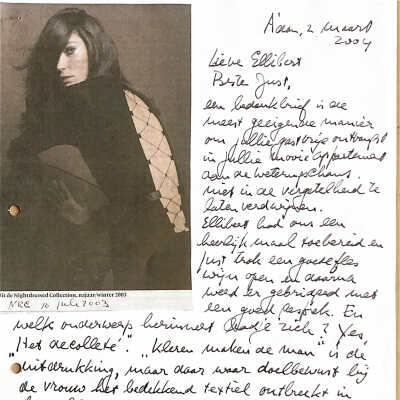 A'dam, 2 maart
2004
Lieve Ellibert
Beste Just,
een bedankbrief is de
meest geëigende manier
om jullie gastvrije ontvangst
in jullie mooie appartement
aan de Weteringschans
niet in de vergetelheid te
laten verdwijnen.
Ellibert had ons een
heerlijk maal toebereid en
Just trok een goede fles
wijn open en daarna
werd er gebridged met
een goed resultaat. En
Uit de Nightdressed Collection, najaar/winter 2003
NRC 10 juli 2003
welk onderwerp herinnert zich? Yes,
"Het decolleté". "Kleren maken de man" is de
uitdrukking, maar daar waar doelbewust bij
de vrouw het bedekkend textiel ontbreekt in